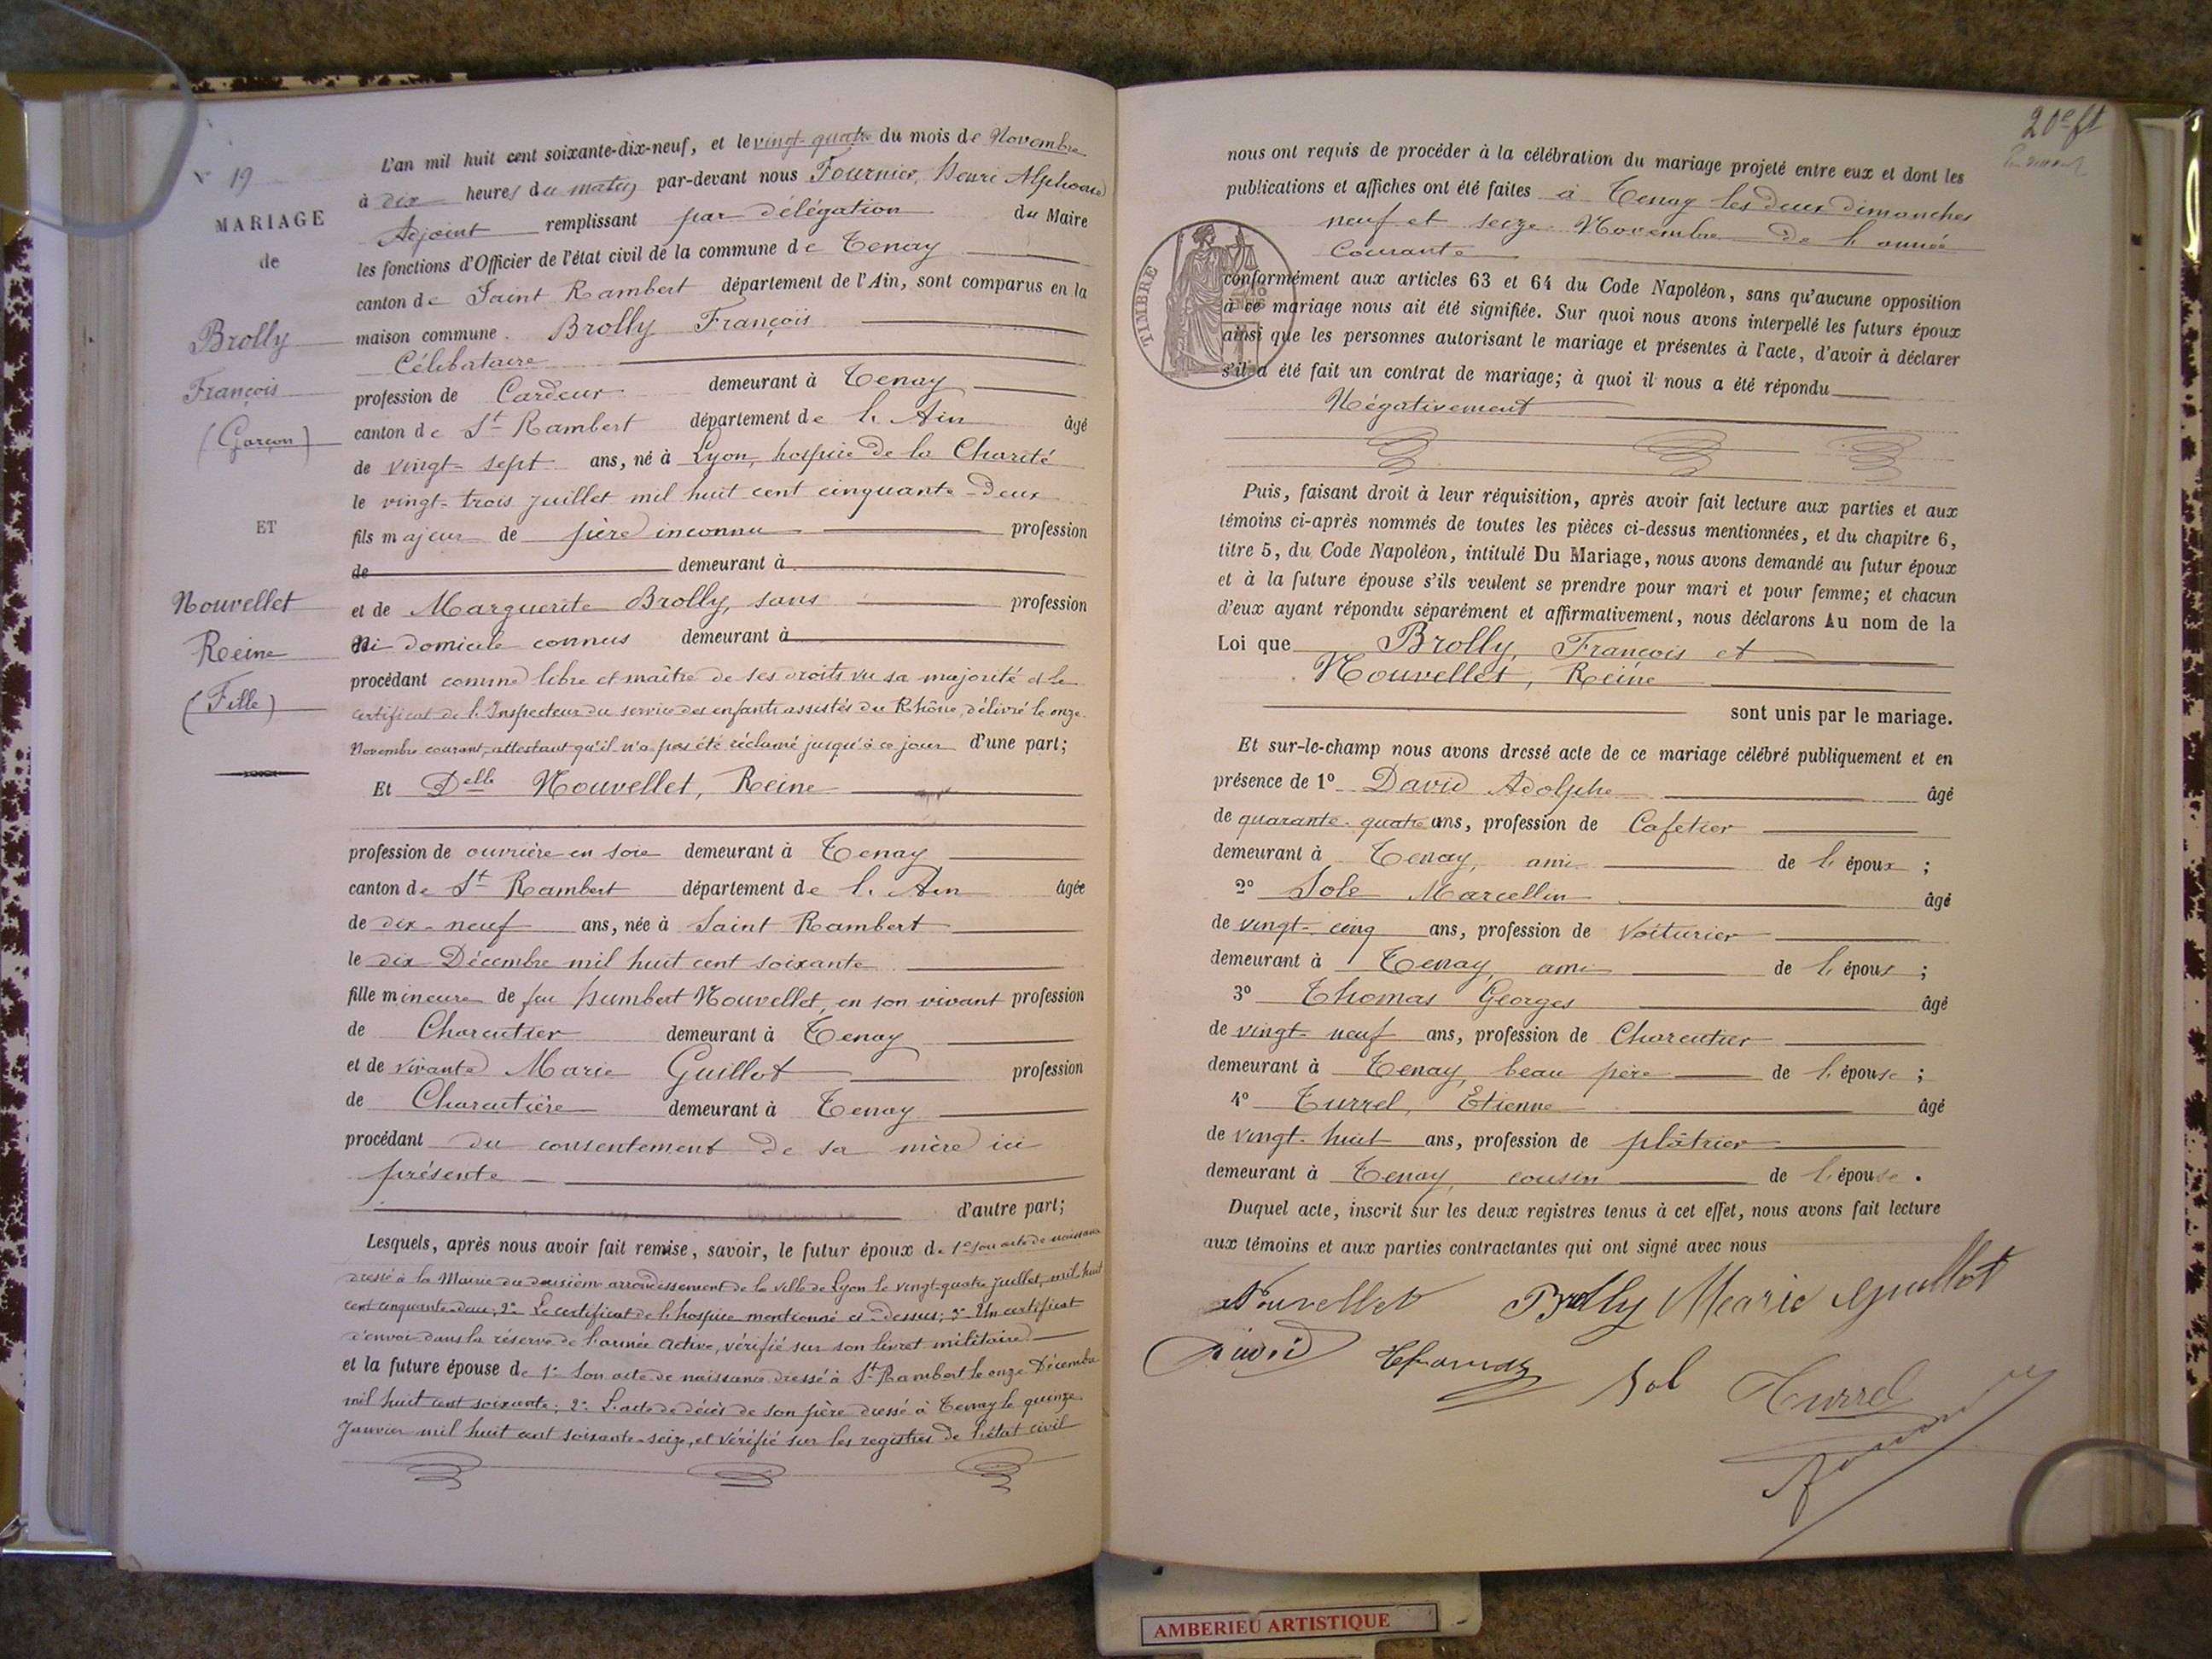 N° 19
MARIAGE
de
Brolly
François
(Garçon)
ET
Nouvellet
Reine
(Fille)
L'an mil huit cent soixante-dix-neuf, et le vingt-quatre du mois de Novembre
à dix heures du matin par-devant nous Fournier, Henri Alphonse
Adjoint remplissant par délégation du Maire
les fonctions d'Officier de l'état civil de la commune de Tenay
canton de Saint Rambert département de l'Ain, sont comparus en la
maison commune. Brolly François
Célibataire
profession de Cardeur demeurant à Tenay
canton de St Rambert département de l'Ain âgé
de vingt-sept ans, né à Lyon, hospice de la Charité
le vingt-trois juillet mil huit cent cinquante-deux
fils majeur de père inconnu profession
de demeurant à
et de Marguerite Brolly, sans profession
ni domicile connus demeurant à
procédant comme libre et maître de ses droits vu sa majorité et le
certificat de l'Inspecteur du service des enfants assistés du Rhône, délivré le onze
Novembre courant, attestant qu'il n'a pas été réclamé jusqu'à ce jour d'une part;
Et Delle Nouvellet, Reine
profession de ouvrière en soie demeurant à Tenay
canton de St Rambert département de l'Ain âgée
de dix-neuf ans, née à Saint Rambert
le dix Décembre mil huit cent soixante
fille mineure de feu Humbert Nouvellet, en son vivant profession
de Charcutier demeurant à Tenay
et de vivante Marie Guillot profession
de Charcutière demeurant à Tenay
procédant du consentement de sa mère ici
présente
d'autre part;
Lesquels, après nous avoir fait remise, savoir, le futur époux de 1° son acte de naissance
dressé à la Mairie du deuxième arrondissement de la ville de Lyon le vingt-quatre juillet, mil huit
cent cinquante-deux; 2° Le certificat de l'hospice mentionné ci-dessus; 3° Un certificat
d'envoi dans la réserve de l'armée active, vérifié sur son livret militaire
et la future épouse de 1° Son acte de naissance dressé à St Rambert le onze Décembre
mil huit cent soixante; 2° L'acte de décès de son père dressé à Tenay le quinze
Janvier mil huit cent soixante-seize, et vérifié sur les registres de l'état civil
20e ft
nous ont requis de procéder à la célébration du mariage projeté entre eux et dont les
publications et affiches ont été faites à Tenay les deux dimanches
neuf et seize Novembre de l'année
Courante
TIMBRE
conformément aux articles 63 et 64 du Code Napoléon, sans qu'aucune opposition
à ce mariage nous ait été signifiée. Sur quoi nous avons interpellé les futurs époux
ainsi que les personnes autorisant le mariage et présentes à l'acte, d'avoir à déclarer
s'il a été fait un contrat de mariage; à quoi il nous a été répondu
Négativement
Puis, faisant droit à leur réquisition, après avoir fait lecture aux parties et aux
témoins ci-après nommés de toutes les pièces ci-dessus mentionnées, et du chapitre 6,
titre 5, du Code Napoléon, intitulé Du Mariage, nous avons demandé au futur époux
et à la future épouse s'ils veulent se prendre pour mari et pour femme; et chacun
d'eux ayant répondu séparément et affirmativement, nous déclarons Au nom de la
Loi que Brolly, François et
Nouvellet, Reine
sont unis par le mariage.
Et sur-le-champ nous avons dressé acte de ce mariage célébré publiquement et en
présence de 1° David Adolphe âgé
de quarante-quatre ans, profession de Cafetier
demeurant à Tenay, ami de l'époux ;
2° Sole Marcellin âgé
de vingt-cinq ans, profession de Voiturier
demeurant à Tenay, ami de l'époux ;
3° Thomas Georges âgé
de vingt-neuf ans, profession de Charcutier
demeurant à Tenay, beau père de l'épouse ;
4° Turrel, Etienne âgé
de vingt-huit ans, profession de plâtrier
demeurant à Tenay, cousin de l'épouse .
Duquel acte, inscrit sur les deux registres tenus à cet effet, nous avons fait lecture
aux témoins et aux parties contractantes qui ont signé avec nous
Nouvellet Brolly Marie Guillot
David Thomas Sol Turrel
AMBERIEU ARTISTIQUE